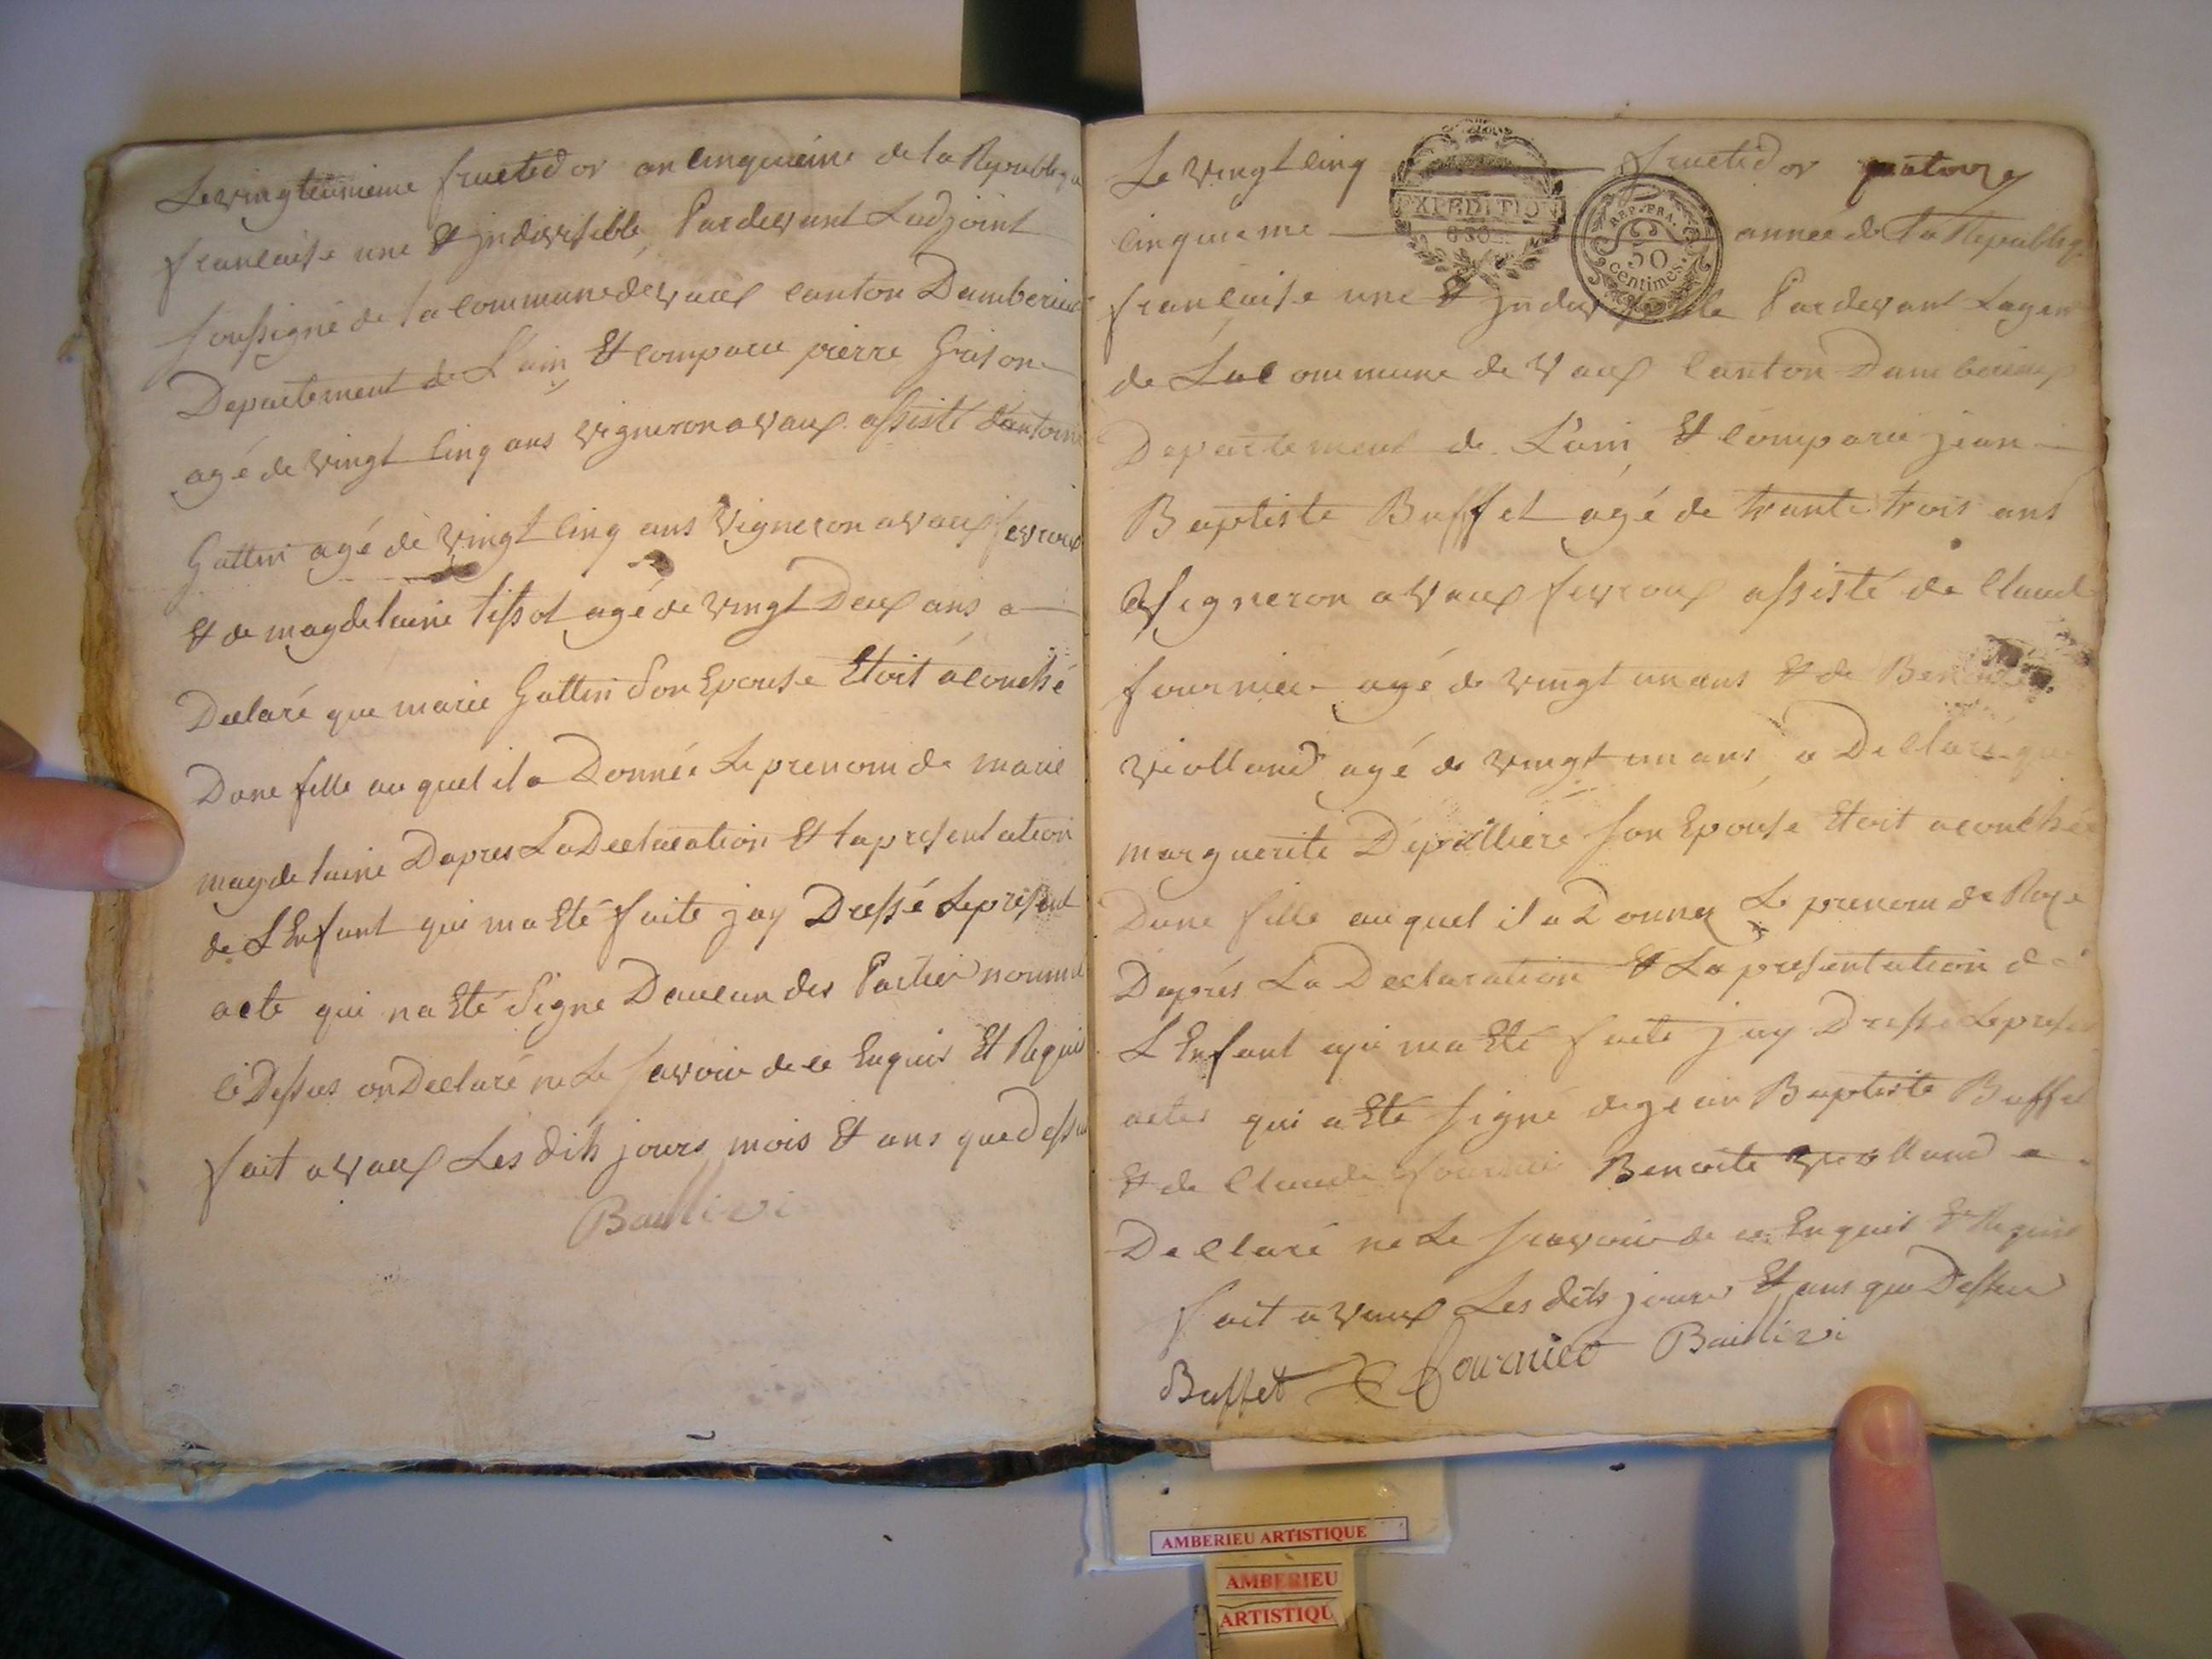 Le vingteunieme fructidor an cinquieme de la Republique
francaise une & jndivisible Pardevant Ladjoint
soussigné de la commune de vaux canton Damberieux
Departement de L'ain & comparu pierre Grison
agé de vingt cinq ans vigneron a vaux assisté dantoine
Gattin agé de vingt cinq ans vigneron a vaux fevroux
& de magdelaine tissot agé de vingt Deux ans a
Declaré que marie Gattin son Epouse Etoit acouché
Dune fille au quel il a Donnée Le prenom de marie
magdelaine Dapres La Declaration & la presentation
de L Enfant qui ma Eté faite jay Dressé Le present
acte qui na Eté Signe Daucun des Parties nommé
ci Dessus on Declaré ne Le savoir de ce Enquis Et Requis
fait a vaux Les dits jours mois & ans que Dessus
Baillivi
Le vingt cinq fructidor
EXPEDITION
REP. FRA.
50
centimes.
cinquieme année de La Republiq
francaise une & jndivisible Pardevant Lagen
de La Commune de Vaux Canton Damberieux
Departement de L'ain & comparu jean
Baptiste Buffet agé de trante trois ans
vigneron a vaux fevroux assisté de Claude
fournier agé de vingt un ans & de
violland agé de vingt un ans a Declaré que
marguerite Depillière son Epouse Etoit acouchée
Dune fille au quel il a Donner Le prenom de Roze
Daprés La Declaration & La presentation de
L Enfant qui ma Eté faite jay Dressé Le presen
actes qui a Eté signé de jean Baptiste Buffet
& de Claude fournier Benoite violland a
Declaré ne Le scavoir de ce Enquis & Requis
fait a vaux Les dits jours & ans que Dessus
Buffet fournier Baillivi
AMBERIEU ARTISTIQUE
AMBERIEU
ARTISTIQU